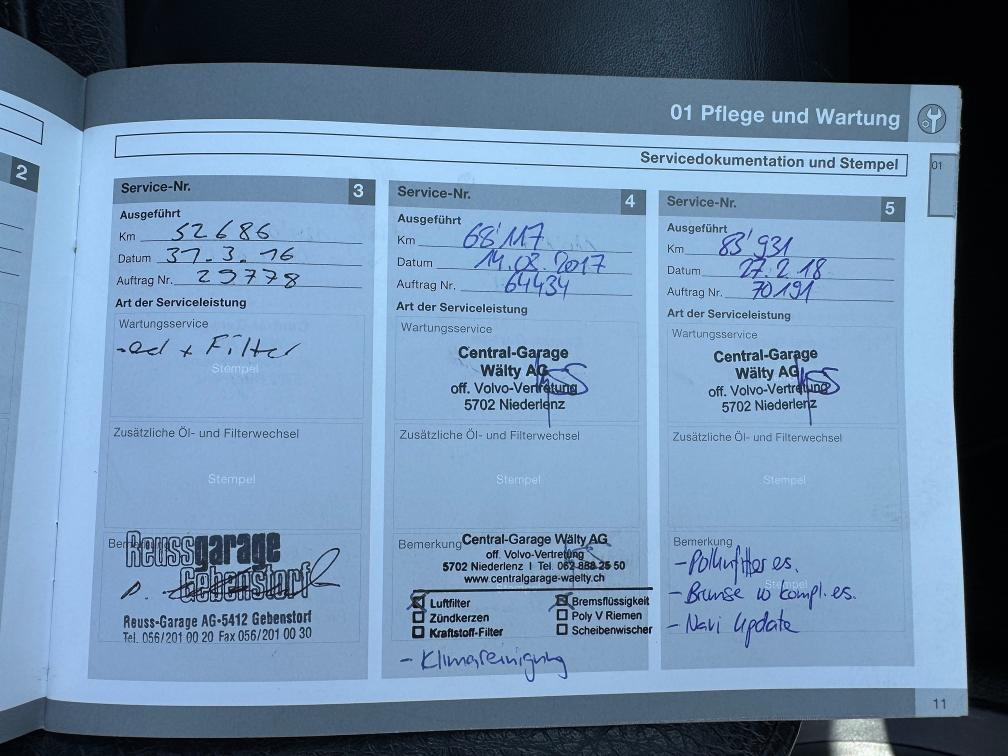 2
01 Pflege und Wartung
01
Servicedokumentation und Stempel
Service-Nr. 3
Ausgeführt
Km 52686
Datum 31.3.16
Auftrag Nr. 29778
Art der Serviceleistung
Wartungsservice
+ Filter
Stempel
Zusätzliche Öl- und Filterwechsel
Stempel
Reussgarage
Gebenstorf
Reuss-Garage AG-5412 Gebenstorf
Tel. 056/201 00 20 Fax 056/201 00 30
Service-Nr. 4
Ausgeführt
Km 68'117
Datum 14.08.2017
Auftrag Nr. 64434
Art der Serviceleistung
Wartungsservice
Central-Garage
Wälty AG
off. Volvo-Vertretung
5702 Niederlenz
Zusätzliche Öl- und Filterwechsel
Stempel
Bemerkung
Central-Garage Wälty AG
off. Volvo-Vertretung
5702 Niederlenz | Tel. 062 888 25 50
www.centralgarage-waelty.ch
Luftfilter Bremsflüssigkeit
Zündkerzen Poly V Riemen
Kraftstoff-Filter Scheibenwischer
- Klimareinigung
Service-Nr. 5
Ausgeführt
Km 83'931
Datum 27.2.18
Auftrag Nr. 70191
Art der Serviceleistung
Wartungsservice
Central-Garage
Wälty AG
off. Volvo-Vertretung
5702 Niederlenz
Zusätzliche Öl- und Filterwechsel
Stempel
Bemerkung
- Pollenfilter es.
Stempel
- kompl. es.
- Navi Update
11